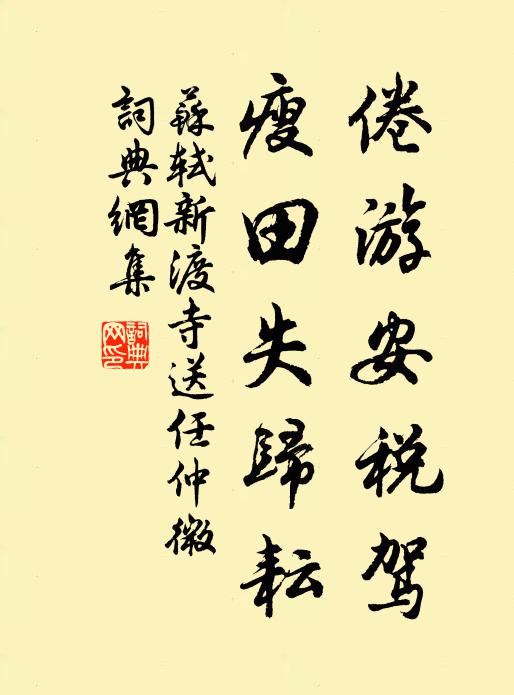 倦游安税驾
瘦田失歸耘
蘇軾新渡寺送任仲微
詞典網集
詞典網印